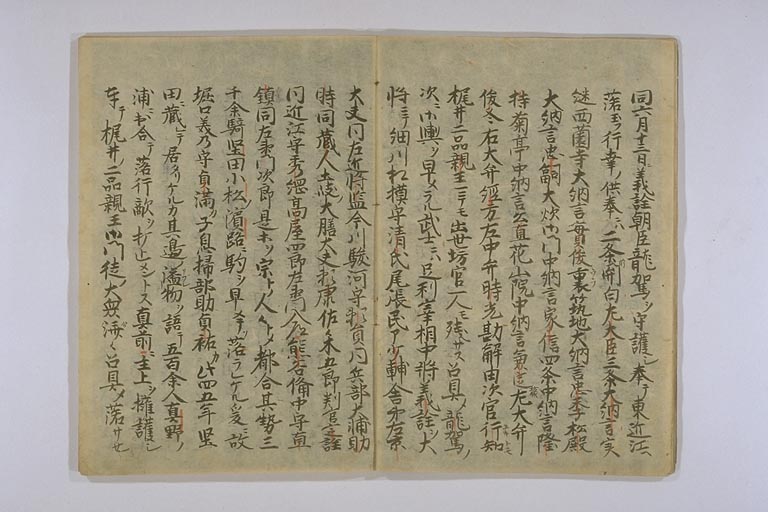 同六月十三日義詮朝臣龍駕ヲ守護シ奉テ東近江ヘ
落玉フ行幸ノ供奉ニハ二条関白左大臣三条大納言実
継西園寺大納言実俊裏築地大納言忠季松殿
大納言忠嗣大炊御門中納言家信四条中納言隆
持菊亭中納言公直花山院中納言兼定左大弁
俊冬右大弁経方左中弁時光勘解由次官行知
梶井二品親王ニテモ出世坊官一人モ残サス召具メ龍駕ノ
次ニ御輿ヲ早メラル武士ニハ足利宰相中将義詮ヲ大
将ニテ細川相模守清氏尾張民部少輔舎弟左京
大夫同左近将監今川駿河守頼貞同兵部大輔助
時同蔵人土岐大膳大夫頼康佐々木五郎判官高詮
同近江守秀綱高屋四郎左衛門入江能谷備中守直
鎮同左衛門次郎是等ヲ宗トノ人々トメ都合其勢三
千余騎堅田小松濱路ニ駒ヲ早メテ落ラレケル爰ニ故
堀口美乃守貞満カ子息掃部助貞祐カ此四五年堅
田ニ蔵テ居タリケルカ其邊ノ溢物ヲ語テ五百余人真野ノ
浦ニ出合テ落行敵ヲ打止メントス真前ニ主上ヲ擁護シ
奉テ梶井二品親王御門徒ノ大衆済々ト召具メ落サセ